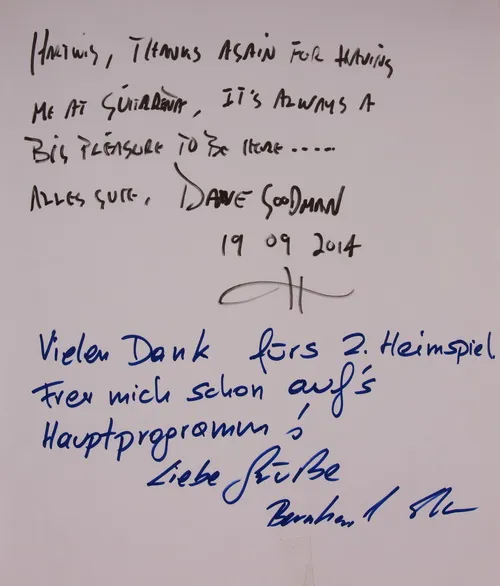 HARTWIG, THANKS AGAIN FOR HAVING
ME AT GUITARENA, IT'S ALWAYS A
BIG PLEASURE TO BE HERE.....
ALLES GUTE, DAVE GOODMAN
19 09 2014
Vielen Dank fürs 2. Heimspiel
Freu mich schon auf's
Hauptprogramm!
Liebe Grüße
Bernhard